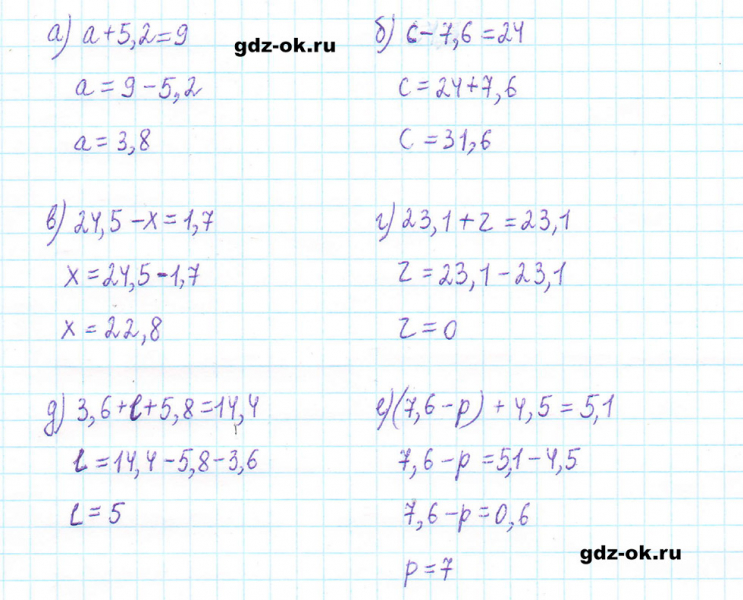 а) a+5,2=9
gdz-ok.ru
a=9-5,2
a=3,8
б) c-7,6=24
c=24+7,6
c=31,6
в) 24,5-x=1,7
x=24,5-1,7
x=22,8
г) 23,1+z=23,1
z=23,1-23,1
z=0
д) 3,6+l+5,8=14,4
l=14,4-5,8-3,6
l=5
е) (7,6-p)+4,5=5,1
7,6-p=5,1-4,5
7,6-p=0,6
p=7
gdz-ok.ru